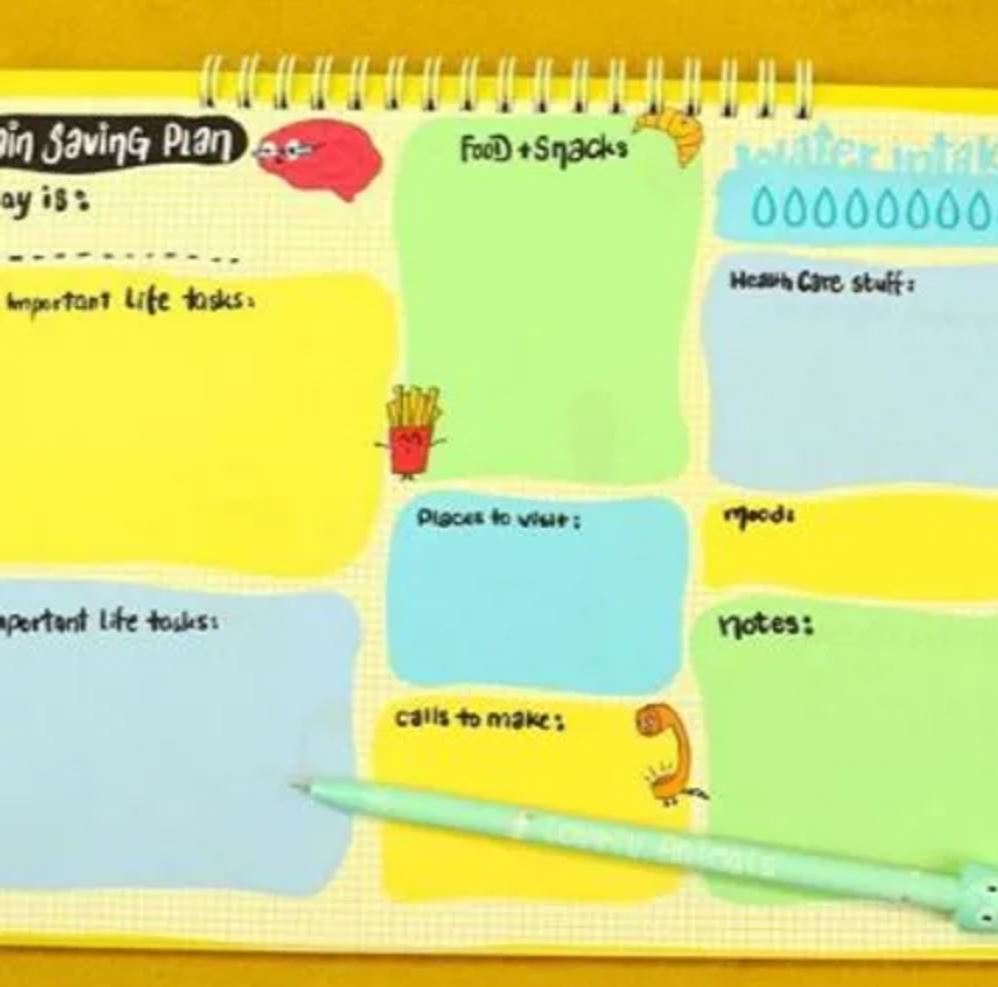 ain Saving Plan
ay is:
Important Life tasks:
mportant life tasks:
Food + Snacks
Places to visit:
calls to make:
water intak
Health Care stuff:
mood:
notes:
Lovely Animals